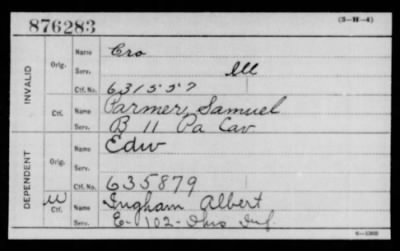 876283 (3-W-4)
INVALID
Orig. Name Cro
Serv. Ill
Ctf. No. 631557
Ctf. Name Parmer, Samuel
Serv. B 11 Pa Cav
DEPENDENT
Orig. Name Edw
Serv.
Ctf. No. 635879
W Ctf. Name Ingham Albert
Serv. E-102-Ohio Inf.